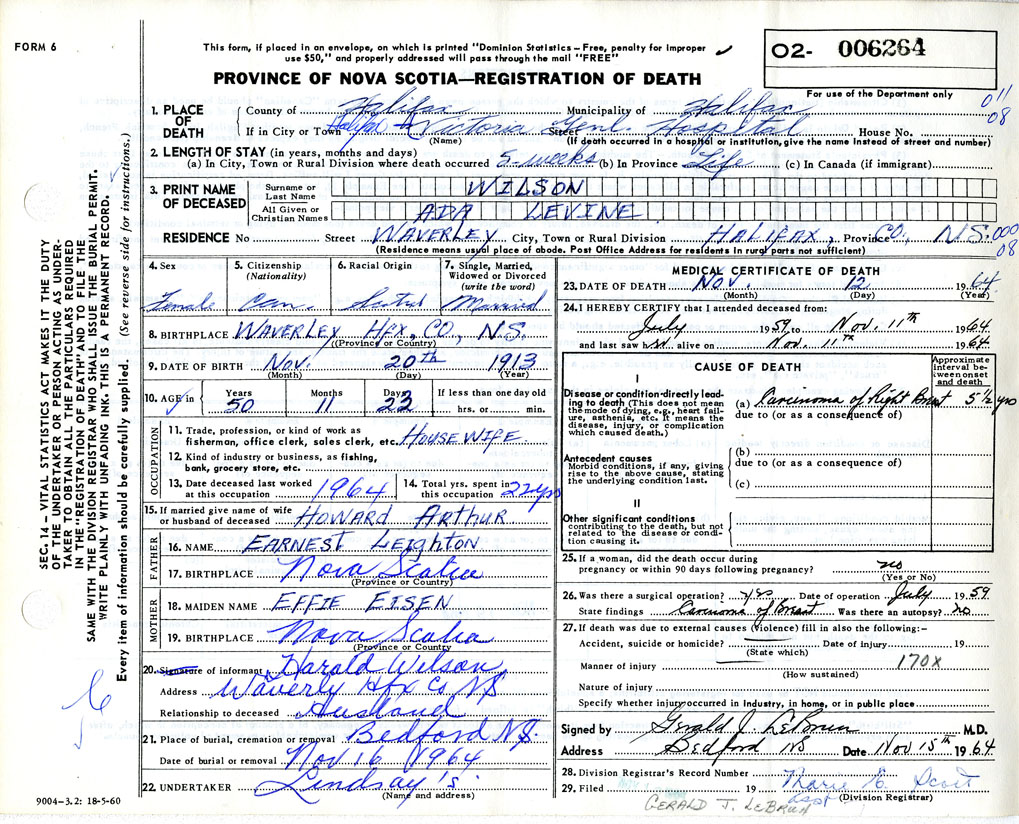 FORM 6
This form, if placed in an envelope, on which is printed "Dominion Statistics – Free, penalty for improper
use $50," and properly addressed will pass through the mail "FREE"
O2- 006264
PROVINCE OF NOVA SCOTIA—REGISTRATION OF DEATH
For use of the Department only
011
08
1. PLACE OF DEATH
County of Halifax Municipality of Halifax
If in City or Town Victoria Street Genl. Hospital House No.
(Name) (If death occurred in a hospital or institution, give the name instead of street and number)
2. LENGTH OF STAY (in years, months and days)
(a) In City, Town or Rural Division where death occurred 5-weeks (b) In Province Life (c) In Canada (if immigrant)
3. PRINT NAME OF DECEASED
Surname or Last Name WILSON
All Given or Christian Names ADA LEVINE
RESIDENCE No Street WAVERLEY City, Town or Rural Division HALIFAX, Province CO, N.S. 000
08
(Residence means usual place of abode. Post Office Address for residents in rural parts not sufficient)
4. Sex Female
5. Citizenship (Nationality) Can.
6. Racial Origin
7. Single, Married, Widowed or Divorced (write the word) Married
8. BIRTHPLACE WAVERLEY HFX, CO, N.S.
(Province or Country)
9. DATE OF BIRTH NOV. 20th 1913
(Month) (Day) (Year)
10. AGE in Years 50 Months 11 Days 23 If less than one day old hrs. or min.
OCCUPATION
11. Trade, profession, or kind of work as
fisherman, office clerk, sales clerk, etc. HOUSEWIFE
12. Kind of industry or business, as fishing,
bank, grocery store, etc.
13. Date deceased last worked at this occupation 1964
14. Total yrs. spent in this occupation 22 yrs
15. If married give name of wife or husband of deceased HOWARD ARTHUR
FATHER
16. NAME EARNEST LEIGHTON
17. BIRTHPLACE Nova Scotia
(Province or Country)
MOTHER
18. MAIDEN NAME EFFIE EISEN
19. BIRTHPLACE Nova Scotia
(Province or Country)
20. Signature of informant Harald Wilson
Address Waverly Hfx Co NS
Relationship to deceased Husband
21. Place of burial, cremation or removal Bedford N.S.
Date of burial or removal Nov 16 1964
22. UNDERTAKER Lindsay's
(Name and address)
9004-3.2: 18-5-60
MEDICAL CERTIFICATE OF DEATH
23. DATE OF DEATH Nov. 12 1964
(Month) (Day) (Year)
24. I HEREBY CERTIFY that I attended deceased from:
July 1959 to Nov. 11th 1964
and last saw her alive on Nov. 11th 1964
CAUSE OF DEATH
Approximate interval between onset and death
I
Disease or condition directly leading to death (This does not mean the mode of dying, e.g., heart failure, asthenia, etc. It means the disease, injury, or complication which caused death.)
(a) Carcinoma of Right Breast 5½ yrs
due to (or as a consequence of)
Antecedent causes
Morbid conditions, if any, giving rise to the above cause, stating the underlying condition last.
(b)
due to (or as a consequence of)
(c)
II
Other significant conditions
contributing to the death, but not related to the disease or condition causing it.
25. If a woman, did the death occur during
pregnancy or within 90 days following pregnancy? no
(Yes or No)
26. Was there a surgical operation? yes Date of operation July 1959
State findings Carcinoma of Breast Was there an autopsy? no
27. If death was due to external causes (violence) fill in also the following:–
Accident, suicide or homicide? Date of injury 19
(State which)
Manner of injury 170X
(How sustained)
Nature of injury
Specify whether injury occurred in Industry, in home, or in public place
Signed by Gerald J. LeBrun M.D.
Address Bedford NS Date Nov 15th 1964
28. Division Registrar's Record Number
29. Filed 19 Marie E. Scott
asst (Division Registrar)
GERALD J. LeBRUN
SEC. 14 – VITAL STATISTICS ACT MAKES IT THE DUTY
OF THE UNDERTAKER OR PERSON ACTING AS UNDER-
TAKER TO OBTAIN ALL THE PARTICULARS REQUIRED
IN THE "REGISTRATION OF DEATH" AND TO FILE THE
SAME WITH THE DIVISION REGISTRAR WHO SHALL ISSUE THE BURIAL PERMIT.
WRITE PLAINLY WITH UNFADING INK. THIS IS A PERMANENT RECORD.
Every item of information should be carefully supplied. (See reverse side for instructions.)